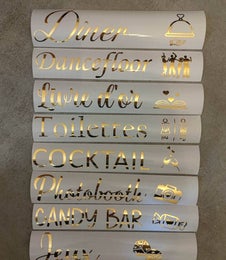 Diner
Dancefloor
Livre d'or
Toilettes
COCKTAIL
Photobooth
CANDY BAR
Jeux